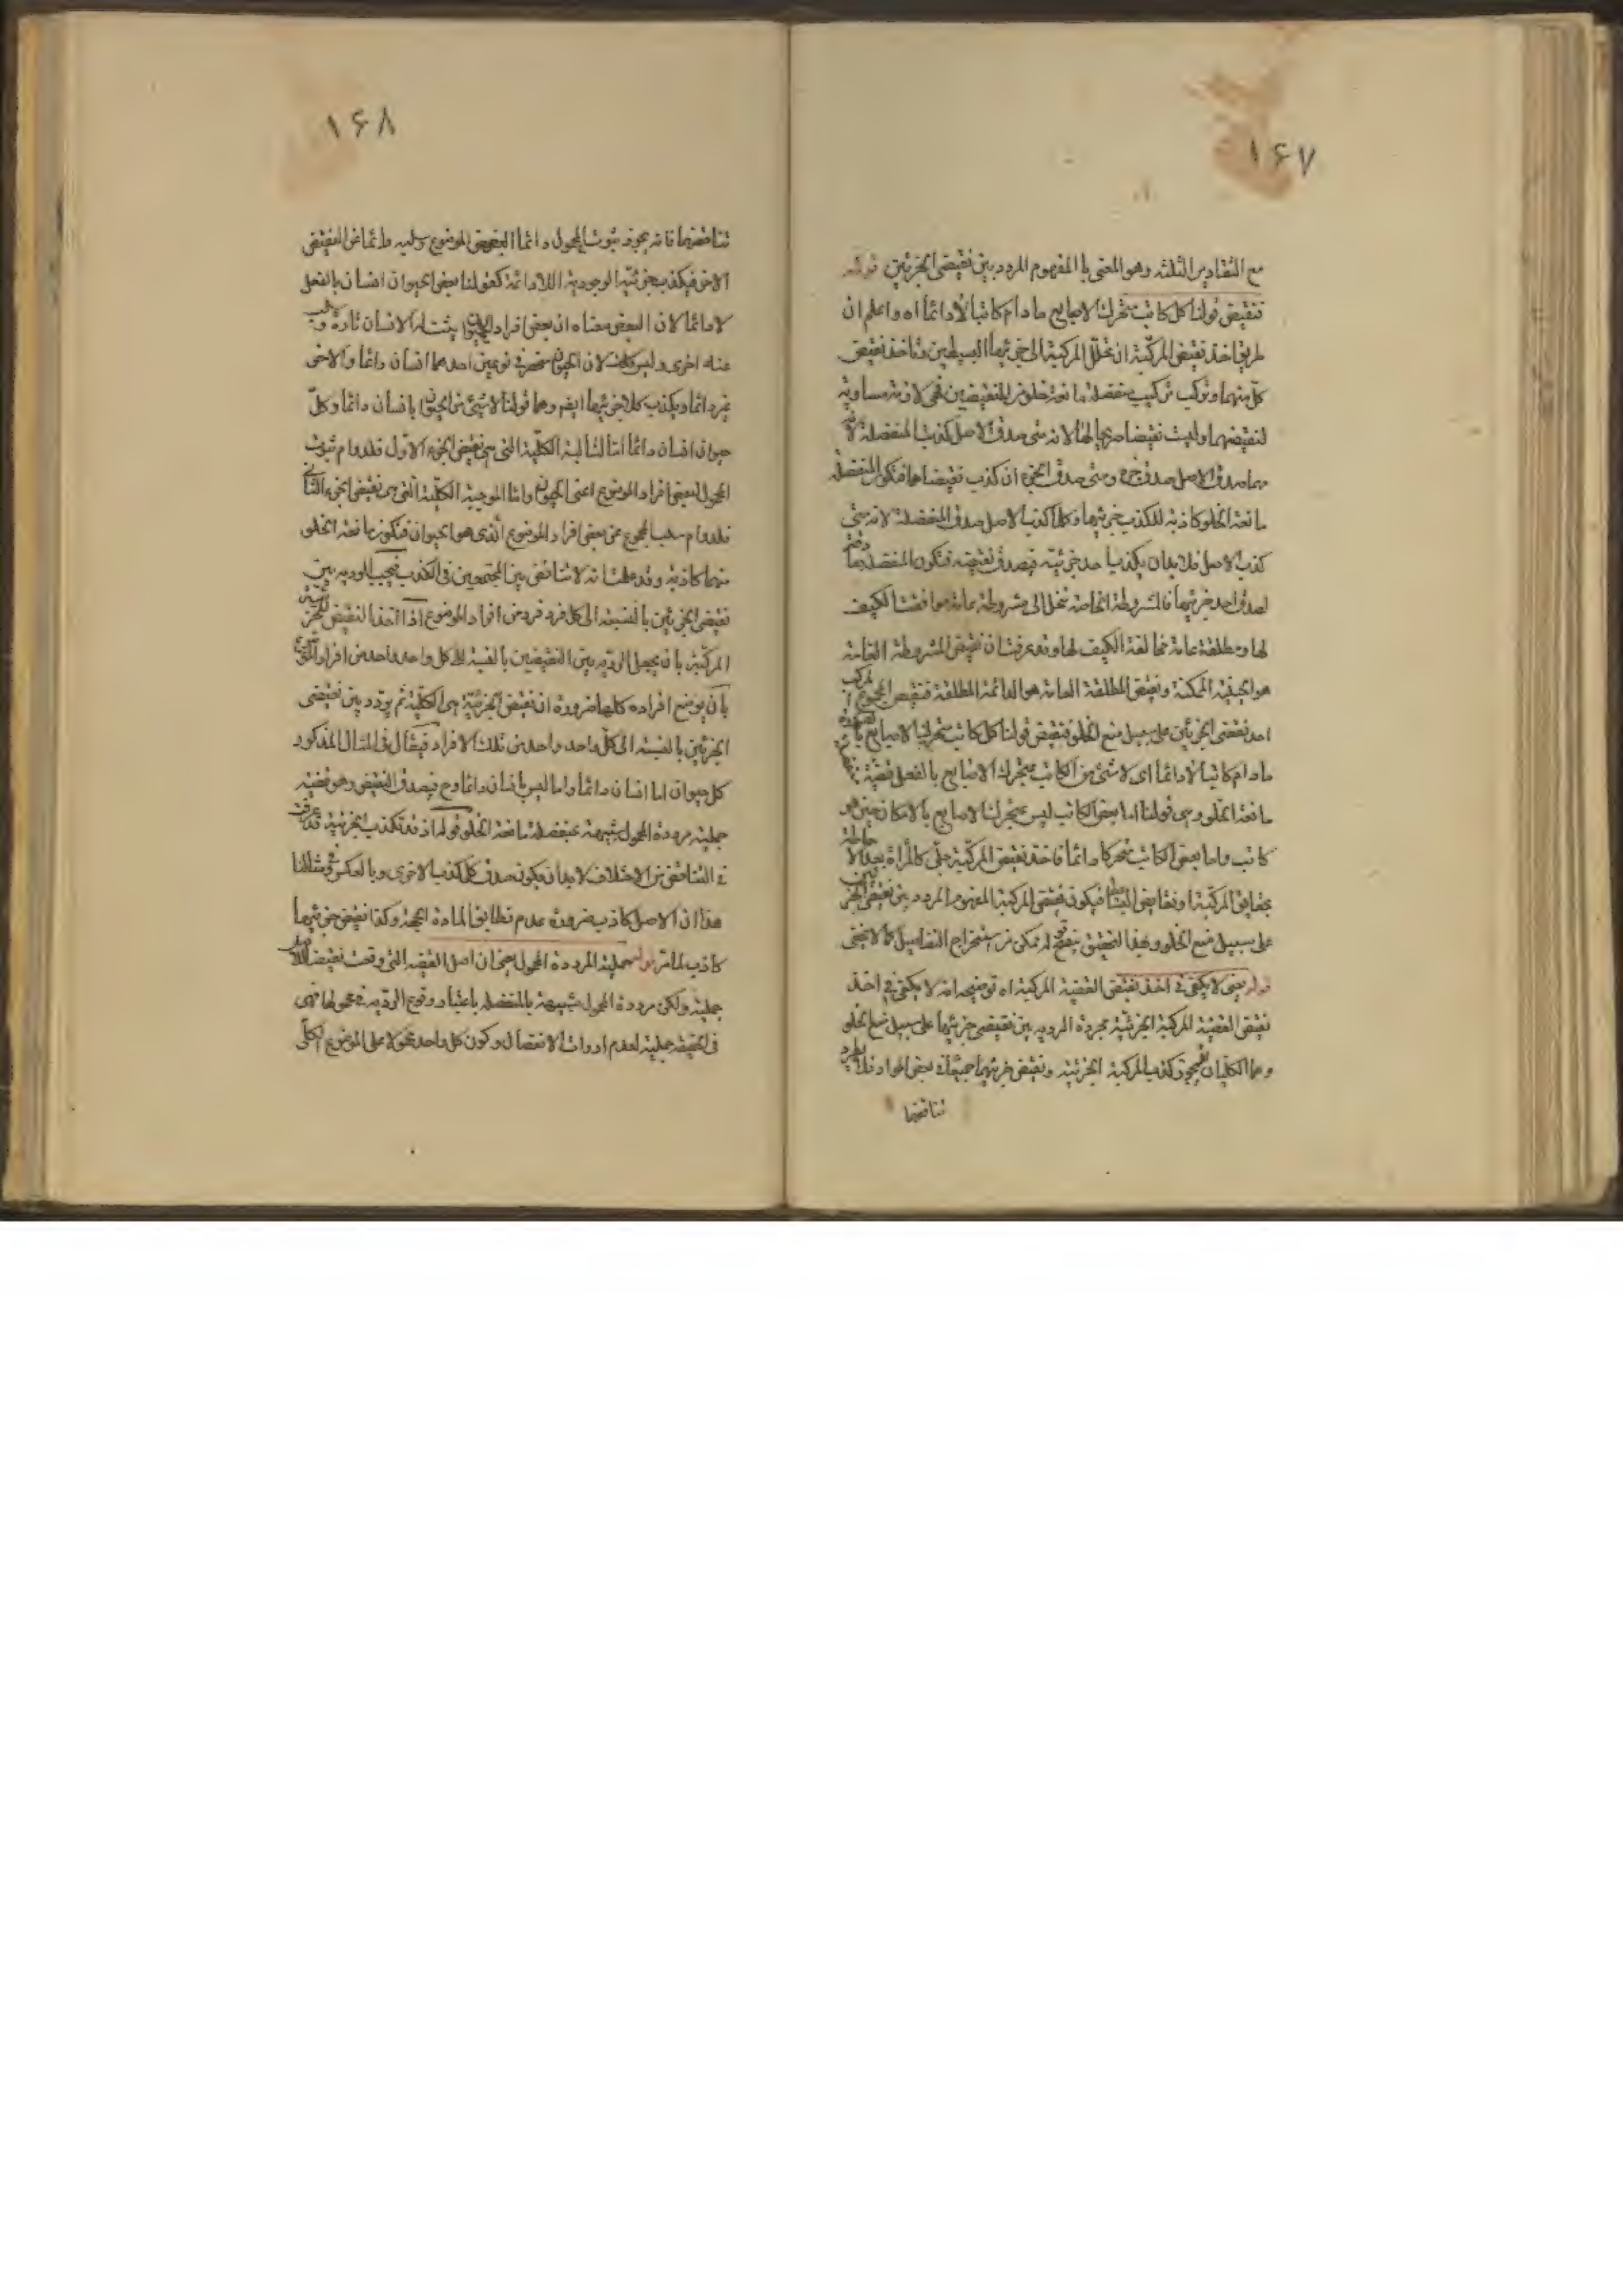 ١۶٧
مع التقادير الثلثة وهو المعنى بالمفهوم المردد بين نقيضى الجزئين قوله
فنقيض قولنا كل كاتب متحرك الاصابع ما دام كاتبا لا دائما اه واعلم ان
طريق اخذ نقيض المركبة ان تحلل المركبة الى جزئيها البسيطين وتاخذ نقيض
كل منهما وتركب تركيب منفصلة مانعة خلو من النقيضين فهى لا وته مساوية
لنقيضهما وليست نقيضا صريحا لها لانه متى صدق الاصل كذب المنفصلة لانه
مهما صدق الاصل صدق جزءه ومتى صدق الجزء ان كذب نقيضاهما فتكون المنفصلة
مانعة الخلو كاذبة لكذب جزئيها وكلما كذب الاصل صدق المنفصلة لانه متى
كذب الاصل فلا بد ان يكذب احد جزئيه فيصدق نقيضه فتكون المنفصلة
لصدق احد جزئيها فالمشروطة الخاصة تنحل الى مشروطة عامة موافقة الكيف
لها ومطلقة عامة مخالفة الكيف لها وقد عرفت ان نقيض المشروطة العامة
هو الحينية الممكنة ونقيض المطلقة العامة هو الدائمة المطلقة فنقيض المجموع المركب
احد نقيضى الجزئين على سبيل منع الخلو فنقيض قولنا كل كاتب متحرك الاصابع بالضرورة
ما دام كاتبا لا دائما اى لا شئ من الكاتب بمتحرك الاصابع بالفعل قضية
مانعة الخلو وهى قولنا اما بعض الكاتب ليس بمتحرك الاصابع بالامكان حين هو
كاتب واما بعض الكاتب متحركا دائما فاخذ نقيض المركبة جلى كالمراة بعد الاحاطة
بحقايق المركبة ونقايض البسائط فيكون نقيض المركبة المفهوم المردد بين نقيضى الجزئين
على سبيل منع الخلو وبهذا التحقيق يتضح له تمكن من استخراج التفاصيل كما لا يخفى
قوله يعنى لا يكفى فى اخذ نقيض القضية المركبة اه توضيحه انه لا يكفى فى اخذ
نقيض القضية المركبة الجزئية مجردة الترديد بين نقيضى جزئيها على سبيل منع الخلو
وهما الكليتان فيجوز كذب المركبة الجزئية ونقيض جزئيها جميعا فى بعض المواد فلا يطرد
تناقضها
١۶٨
تناقضهما فانه يجوز ثبوت المحمول دائما لبعض الموضوع وسلبه دائما عن البعض
الاخر فيكذب جزئية الوجودية اللادائمة كقولنا بعض الحيوان انسان بالفعل
لا دائما لان البعض معناه ان بعض افراد الحيوان يثبت له الانسان تارة ويسلب
عنه اخرى وليس كذلك لان الحيوان منحصر فى نوعين احدهما انسان دائما والاخر
غيره دائما ويكذب كلا جزئيها ايضم وهما قولنا لا شئ من الحيوان بانسان دائما وكل
حيوان انسان دائما اما السالبة الكلية التى هى نقيض الجزء الاول فلدوام ثبوت
المحمول لبعض افراد الموضوع اعنى الحيوان واما الموجبة الكلية التى هى نقيض الجزء الثانى
فلدوام سلب المحمول عن بعض افراد الموضوع الذى هو الحيوان فتكون مانعة الخلو
منهما كاذبة وقد علمت انه لا تناقض بين المجتمعين فى الكذب فيجب الترديد بين
نقيضى الجزئين بالنسبة الى كل فرد فرد من افراد الموضوع اذا اخذ النقيض للجزئية
المركبة بان يجعل الترديد بين النقيضين بالنسبة الى كل واحد واحد من افراد الموضوع
بان يوضع افراده كلها ضرورة ان نقيض الجزئية هى الكلية ثم يردد بين نقيضى
الجزئين بالنسبة الى كل واحد واحد من تلك الافراد فيقال فى المثال المذكور
كل حيوان اما انسان دائما واما ليس بانسان دائما وح فيصدق النقيض وهو قضية
حملية مرددة المحمول شبيهة بمنفصلة مانعة الخلو قوله اذ قد تكذب الجزئية قد عرفت
فى التناقض من الاختلاف لا بد ان يكون صدق كل كذب الاخرى وبالعكس وفى مثالنا
هذا ان الاصل كاذب ضرورة عدم تطابق المادة الجهة وكذا نقيض جزئيها
كاذب لما مر قوله حملية المرددة المحمول يعنى ان اصل القضية التى وقعت نقيض الاصل
حملية ولكن مرددة المحمول شبيهة بالمنفصلة باعتبار وقوع الترديد فى محمولها فهى
فى الحقيقة حملية لعدم ادوات الانفصال وكون كل واحد محمولا على الموضوع الكلى